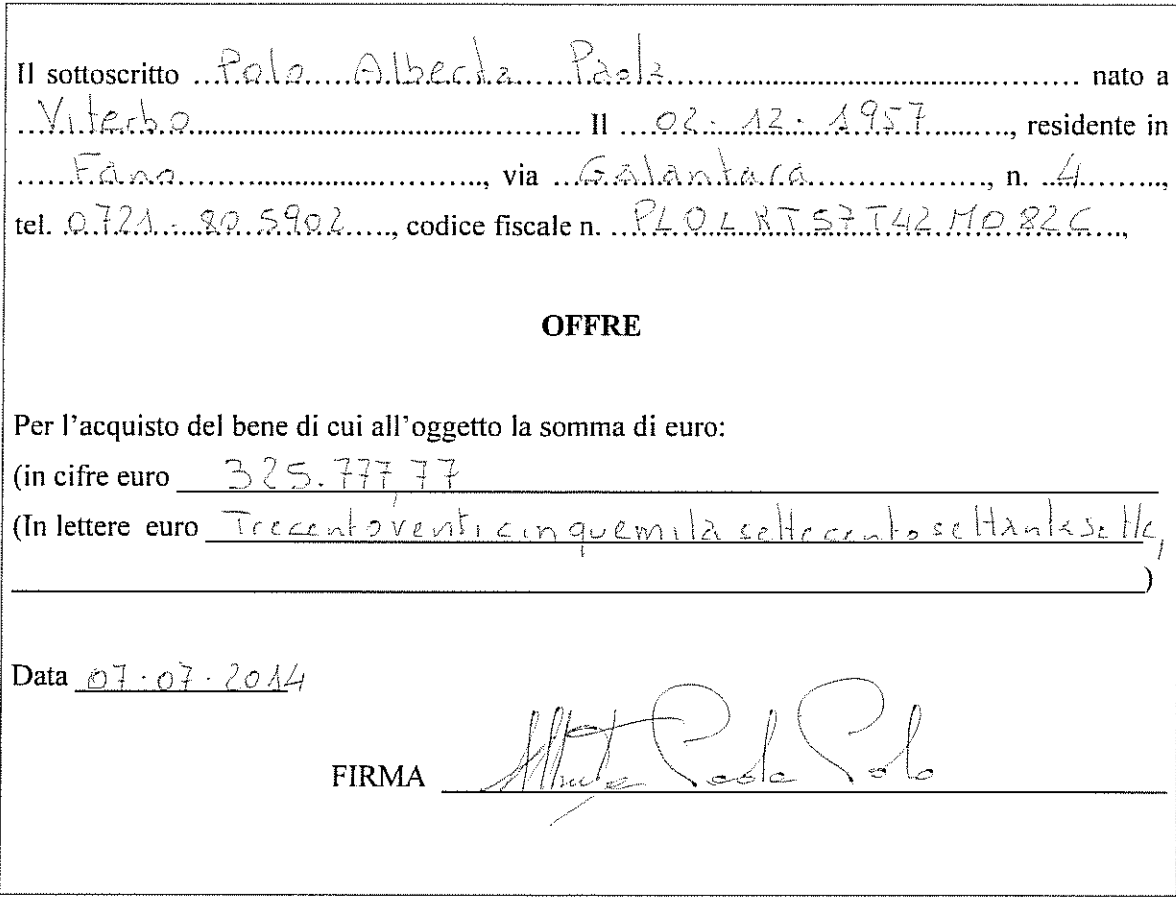 Il sottoscritto ...Polo....Alberta.....Paola............................................ nato a
...Viterbo............................................ Il ....02.-.12.-.1957.........., residente in
......Fano................................, via ...Galantara..................., n. ..4.........,
tel. 0721-805902....., codice fiscale n. ...PLOLRT57T42M082C...,
OFFRE
Per l'acquisto del bene di cui all'oggetto la somma di euro:
(in cifre euro 325.777,77
(In lettere euro Trecentoventicinquemila settecentosettantasette,
)
Data 07.07.2014
FIRMA Alberta Paola Polo